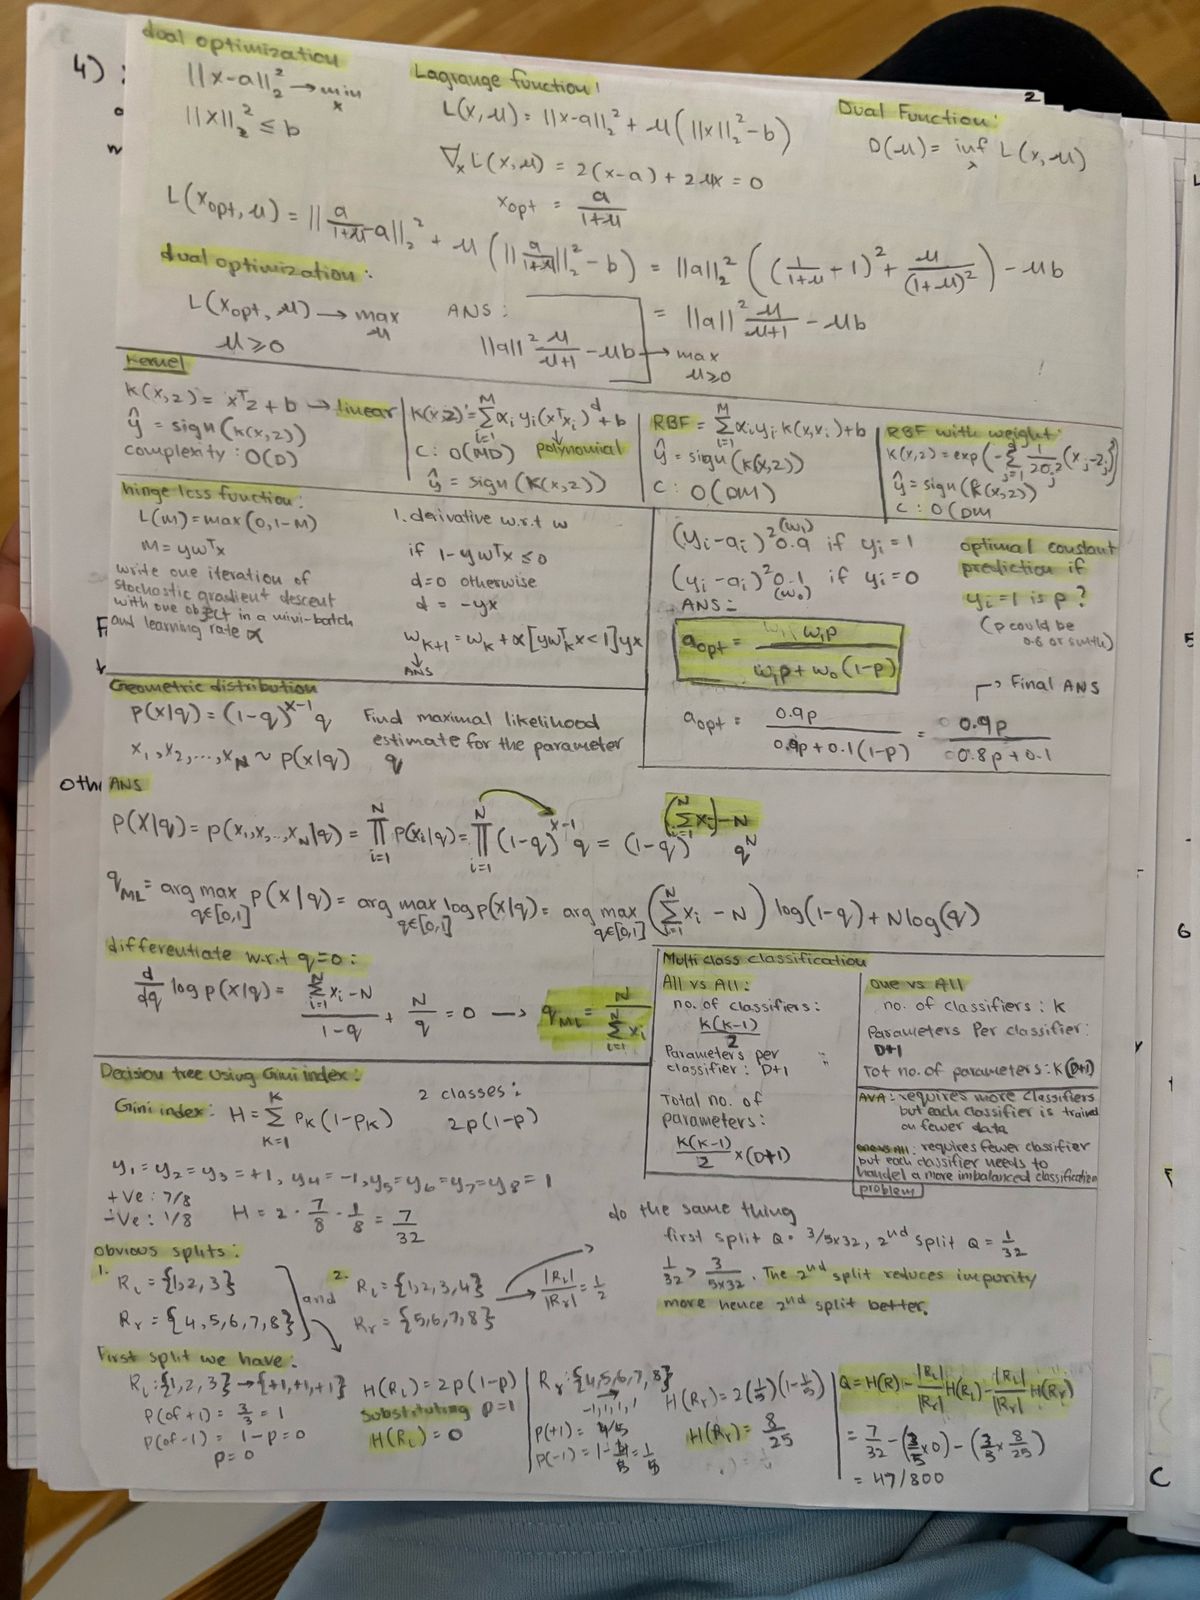 4)
2
dual optimization
||x-a||₂² → min x
||x||₂² ≤ b
Lagrange function!
L(x, μ) = ||x-a||₂² + μ(||x||₂² - b)
∇ₓ L(x, μ) = 2(x-a) + 2μx = 0
x_opt = a/(1+μ)
Dual Function:
D(μ) = inf x L(x, μ)
L(x_opt, μ) = ||a/(1+μ) - a||₂² + μ(||a/(1+μ)||₂² - b) = ||a||₂² ((1/(1+μ) + 1)² + μ/(1+μ)²) - μb
= ||a||² μ/(μ+1) - μb
dual optimization:
L(x_opt, μ) → max μ
μ ≥ 0
ANS:
||a||² μ/(μ+1) - μb → max μ≥0
Kernel
K(x,z) = xᵀz + b → linear
ŷ = sign(K(x,z))
complexity: O(D)
K(x,z) = Σ_{i=1}^{M} αᵢ yᵢ (xᵀxᵢ)^d + b
C: O(MD) polynomial
ŷ = sign(K(x,z))
RBF = Σ_{i=1}^{M} αᵢ yᵢ K(x,xᵢ) + b
ŷ = sign(K(x,z))
C: O(DM)
RBF with weight:
K(x,z) = exp(-Σ_{j=1}^{d} 1/2σⱼ² (xⱼ-zⱼ)
ŷ = sign(K(x,z))
C: O(DM
hinge loss function:
L(m) = max(0, 1-M)
M = ywᵀx
write one iteration of
stochastic gradient descent
with one object in a mini-batch
and learning rate α
1. derivative w.r.t w
if 1-ywᵀx ≤ 0
d=0 otherwise
d = -yx
w_{k+1} = w_k + α[yw_kᵀx<1]yx
ANS
(yᵢ-aᵢ)² 0.9 (w₁) if yᵢ = 1
(yᵢ-aᵢ)² 0.1 (w₀) if yᵢ = 0
ANS:
a_opt = w₁p / (w₁p + w₀(1-p))
optimal constant
prediction if
yᵢ=1 is p?
(p could be
0.6 or smth)
→ Final ANS
a_opt = 0.9p / (0.9p + 0.1(1-p)) = 0.9p / (0.8p + 0.1)
Geometric distribution
p(x|q) = (1-q)^{x-1} q
x₁, x₂, ..., x_N ~ p(x|q)
Find maximal likelihood
estimate for the parameter
q
Oth
ANS
p(X|q) = p(x₁, x₂, .., x_N|q) = Π_{i=1}^{N} p(xᵢ|q) = Π_{i=1}^{N} (1-q)^{x-1} q = (1-q)^{(Σ_{i=1}^{N} xᵢ) - N} q^N
q_ML = arg max q∈[0,1] p(X|q) = arg max q∈[0,1] log p(X|q) = arg max q∈[0,1] (Σ_{i=1}^{N} xᵢ - N) log(1-q) + N log(q)
differentiate w.r.t q=0:
d/dq log p(X|q) = (Σ_{i=1}^{N} xᵢ - N)/(1-q) + N/q = 0 → q_ML = N / Σ_{i=1}^{N} xᵢ
Multi class classification
All vs All:
no. of classifiers:
K(K-1)/2
Parameters per
classifier: D+1
Total no. of
parameters:
K(K-1)/2 × (D+1)
One vs All
no. of classifiers: K
Parameters Per classifier:
D+1
Tot no. of parameters: K(D+1)
AVA: requires more classifiers
but each classifier is trained
on fewer data
requires fewer classifier
but each classifier needs to
handel a more imbalanced classification
problem
Decision tree using Gini index:
Gini index: H = Σ_{K=1}^{K} P_K(1-P_K)
2 classes:
2p(1-p)
y₁ = y₂ = y₃ = +1, y₄ = -1, y₅ = y₆ = y₇ = y₈ = 1
+Ve: 7/8
-Ve: 1/8
H = 2 · 7/8 · 1/8 = 7/32
obvious splits:
1. R_l = {1,2,3}
R_r = {4,5,6,7,8}
and
2. R_l = {1,2,3,4}
R_r = {5,6,7,8}
→ |R_l|/|R_r| = 1/2
do the same thing
first split Q = 3/5x32, 2nd split Q = 1/32
1/32 > 3/5x32. The 2nd split reduces impurity
more hence 2nd split better.
First split we have:
R_l: {1,2,3} → {+1,+1,+1}
P(of +1) = 3/3 = 1
P(of -1) = 1-p = 0
p=0
H(R_l) = 2p(1-p)
Substituting p=1
H(R_l) = 0
R_r: {4,5,6,7,8}
-1,1,1,1
P(+1) = 4/5
P(-1) = 1-4/5 = 1/5
H(R_r) = 2(1/5)(1-1/5)
H(R_r) = 8/25
Q = H(R) - |R_l|/|R_r| H(R_l) - |R_l|/|R_r| H(R_r)
= 7/32 - (3/5 × 0) - (3/5 × 8/25)
= 47/800
5
6
C